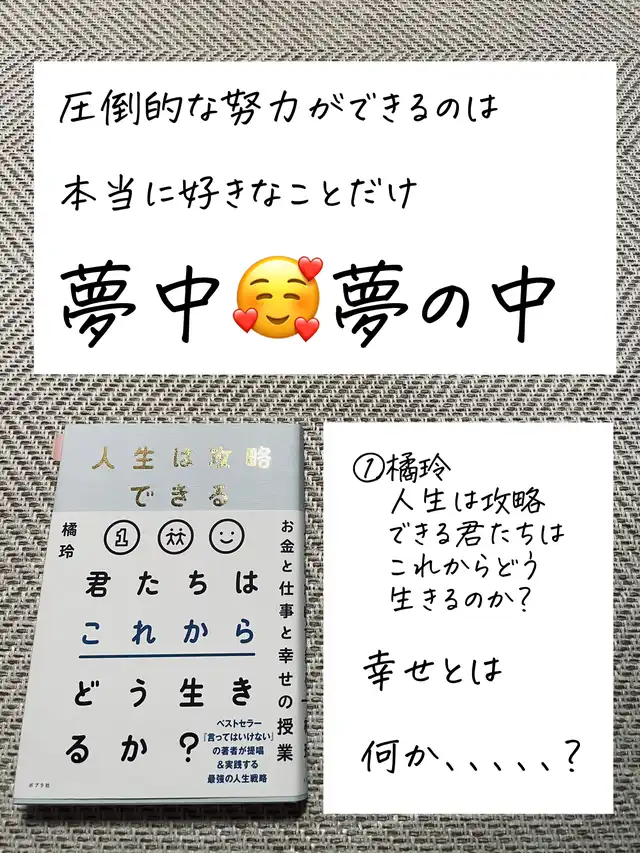 圧倒的な努力ができるのは
本当に好きなことだけ
夢中🥰夢の中
人生は攻略
できる
橘玲
1
君たちは
これから
どう生き
るか?
お金と仕事と幸せの授業
ベストセラー
「言ってはいけない」
の著者が提唱
&実践する
最強の人生戦略
ポプラ社
①橘玲
人生は攻略
できる君たちは
これからどう
生きるのか?
幸せとは
何か、、、、、?